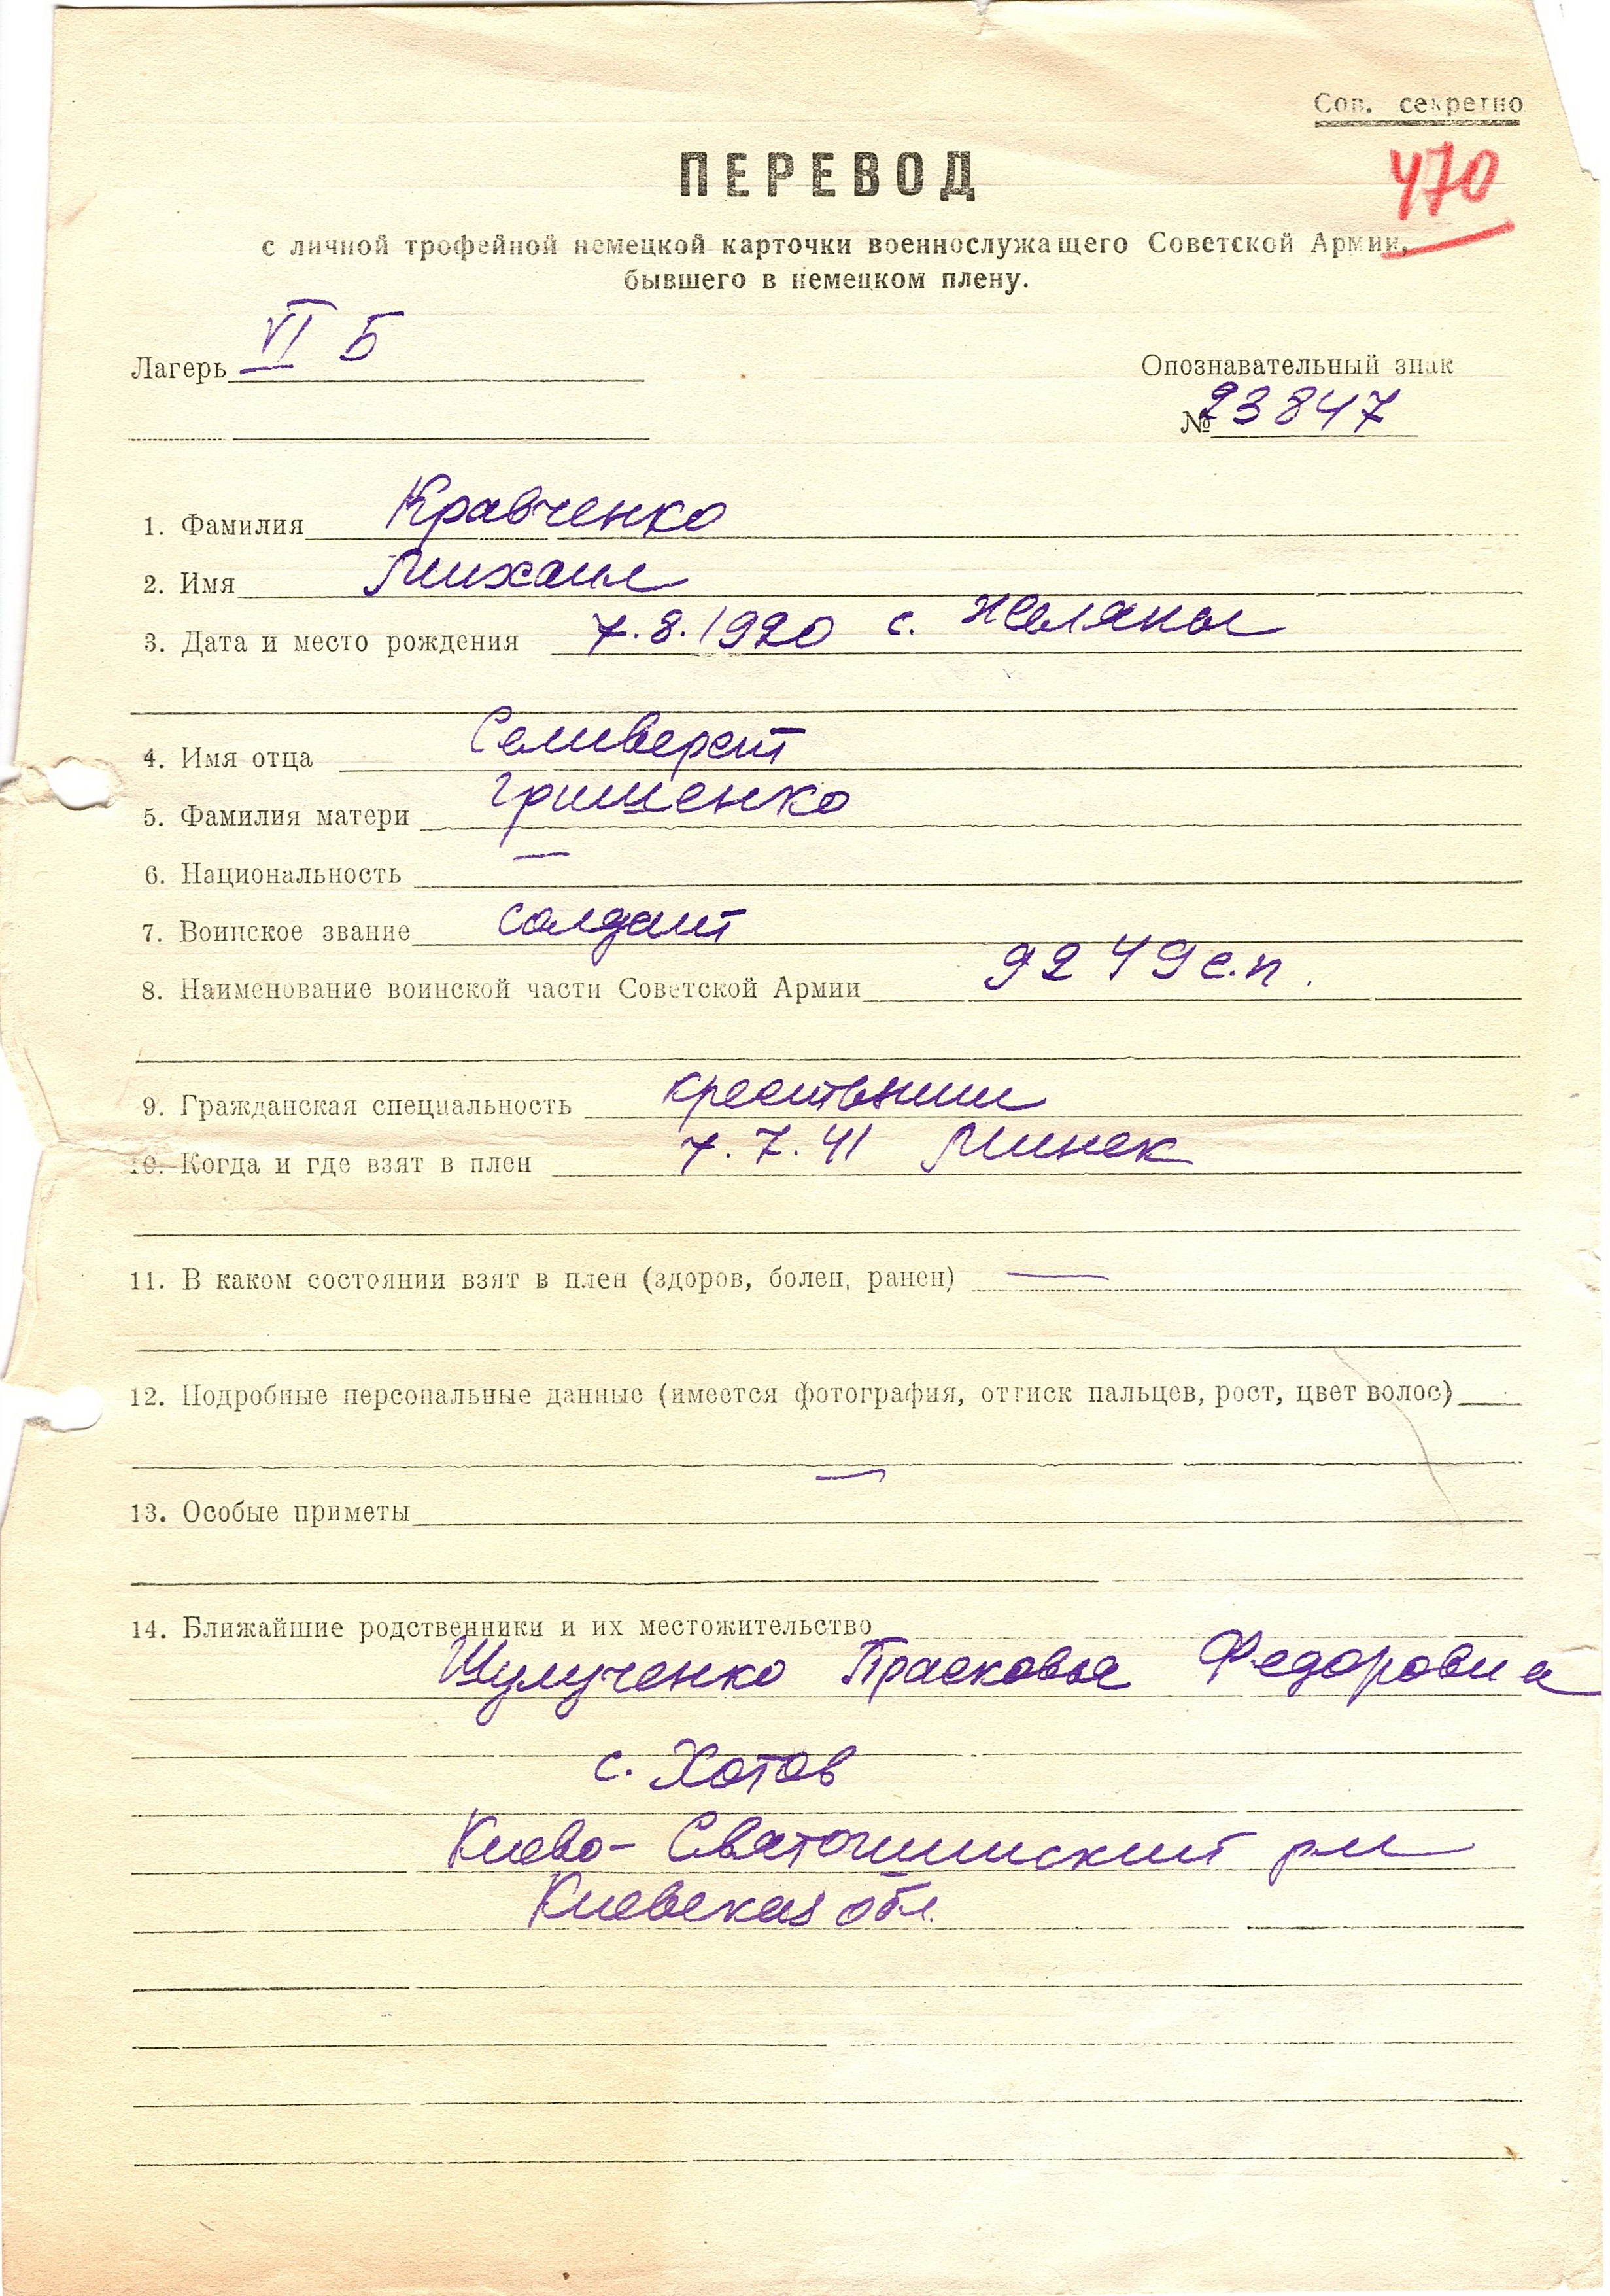 Сов. секретно
470
ПЕРЕВОД
с личной трофейной немецкой карточки военнослужащего Советской Армии,
бывшего в немецком плену.
Лагерь VI Б
Опознавательный знак
№ 23847
1. Фамилия Кравченко
2. Имя Михаил
3. Дата и место рождения 7.8.1920 с. Желяны
4. Имя отца Селиверст
5. Фамилия матери Грищенко
6. Национальность —
7. Воинское звание солдат
8. Наименование воинской части Советской Армии 9249 с.п.
9. Гражданская специальность крестьянин
10. Когда и где взят в плен 7.7.41 Минск
11. В каком состоянии взят в плен (здоров, болен, ранен) —
12. Подробные персональные данные (имеется фотография, оттиск пальцев, рост, цвет волос)
—
13. Особые приметы
14. Ближайшие родственники и их местожительство
Шулученко Прасковья Федоровна
с. Хотов
Киево-Святошинский р-н
Киевская обл.